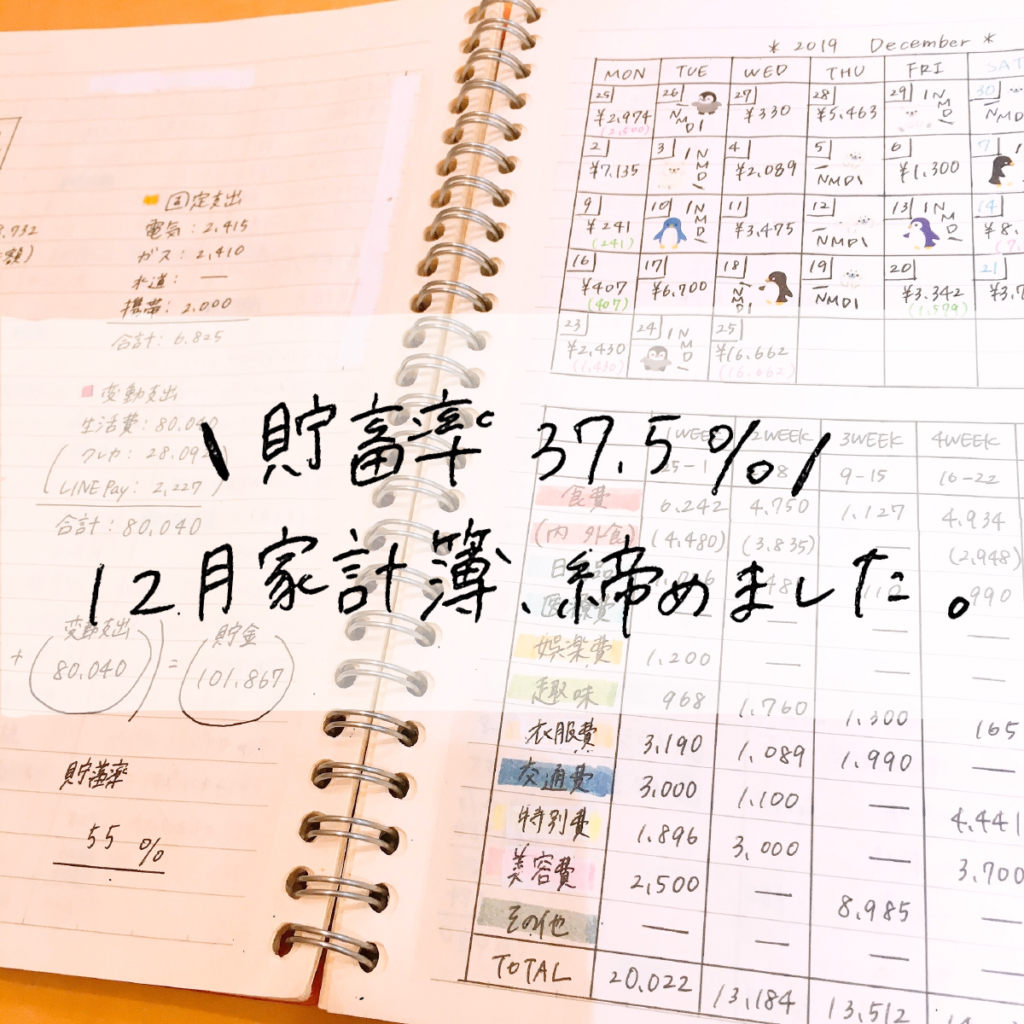 \ 貯蓄率 37.5% /
12月家計簿、締めました。
■ 固定支出
電気: 2,415
ガス: 2,410
水道: —
携帯: 2,000
合計: 6,825
■ 変動支出
生活費: 80,040
クレカ: 28,09
LINE Pay: 2,227
合計: 80,040
変動支出 貯金
+ 80,040 = 101,867
貯蓄率
55 %
* 2019 December *
MON TUE WED THU FRI SAT
25 26 27 28 29 30
¥2,974 NMDI ¥330 ¥5,463 NMDI NMDI
(2,500)
2 3 4 5 6 7
¥7,135 NMDI ¥2,089 NMDI ¥1,300
9 10 11 12 13 14
¥241 NMDI ¥3,475 NMDI NMDI ¥8,
(241)
16 17 18 19 20 21
¥407 ¥6,700 NMDI NMDI ¥3,342 ¥3,7
(407) (1,579)
23 24 25
¥2,430 NMDI ¥16,662
(1,430) (16,662)
1WEEK 2WEEK 3WEEK 4WEEK
25-1 8 9-15 16-22
食費 6,242 4,750 1,127 4,934
(内 外食) (4,480) (3,835) — (2,948)
990
娯楽費 1,200 — — —
趣味 968 1,760 1,300 165
衣服費 3,190 1,089 1,990 —
交通費 3,000 1,100 — 4,441
特別費 1,896 3,000 — 3,700
美容費 2,500 — 8,985 —
その他 — — — —
TOTAL 20,022 13,184 13,512